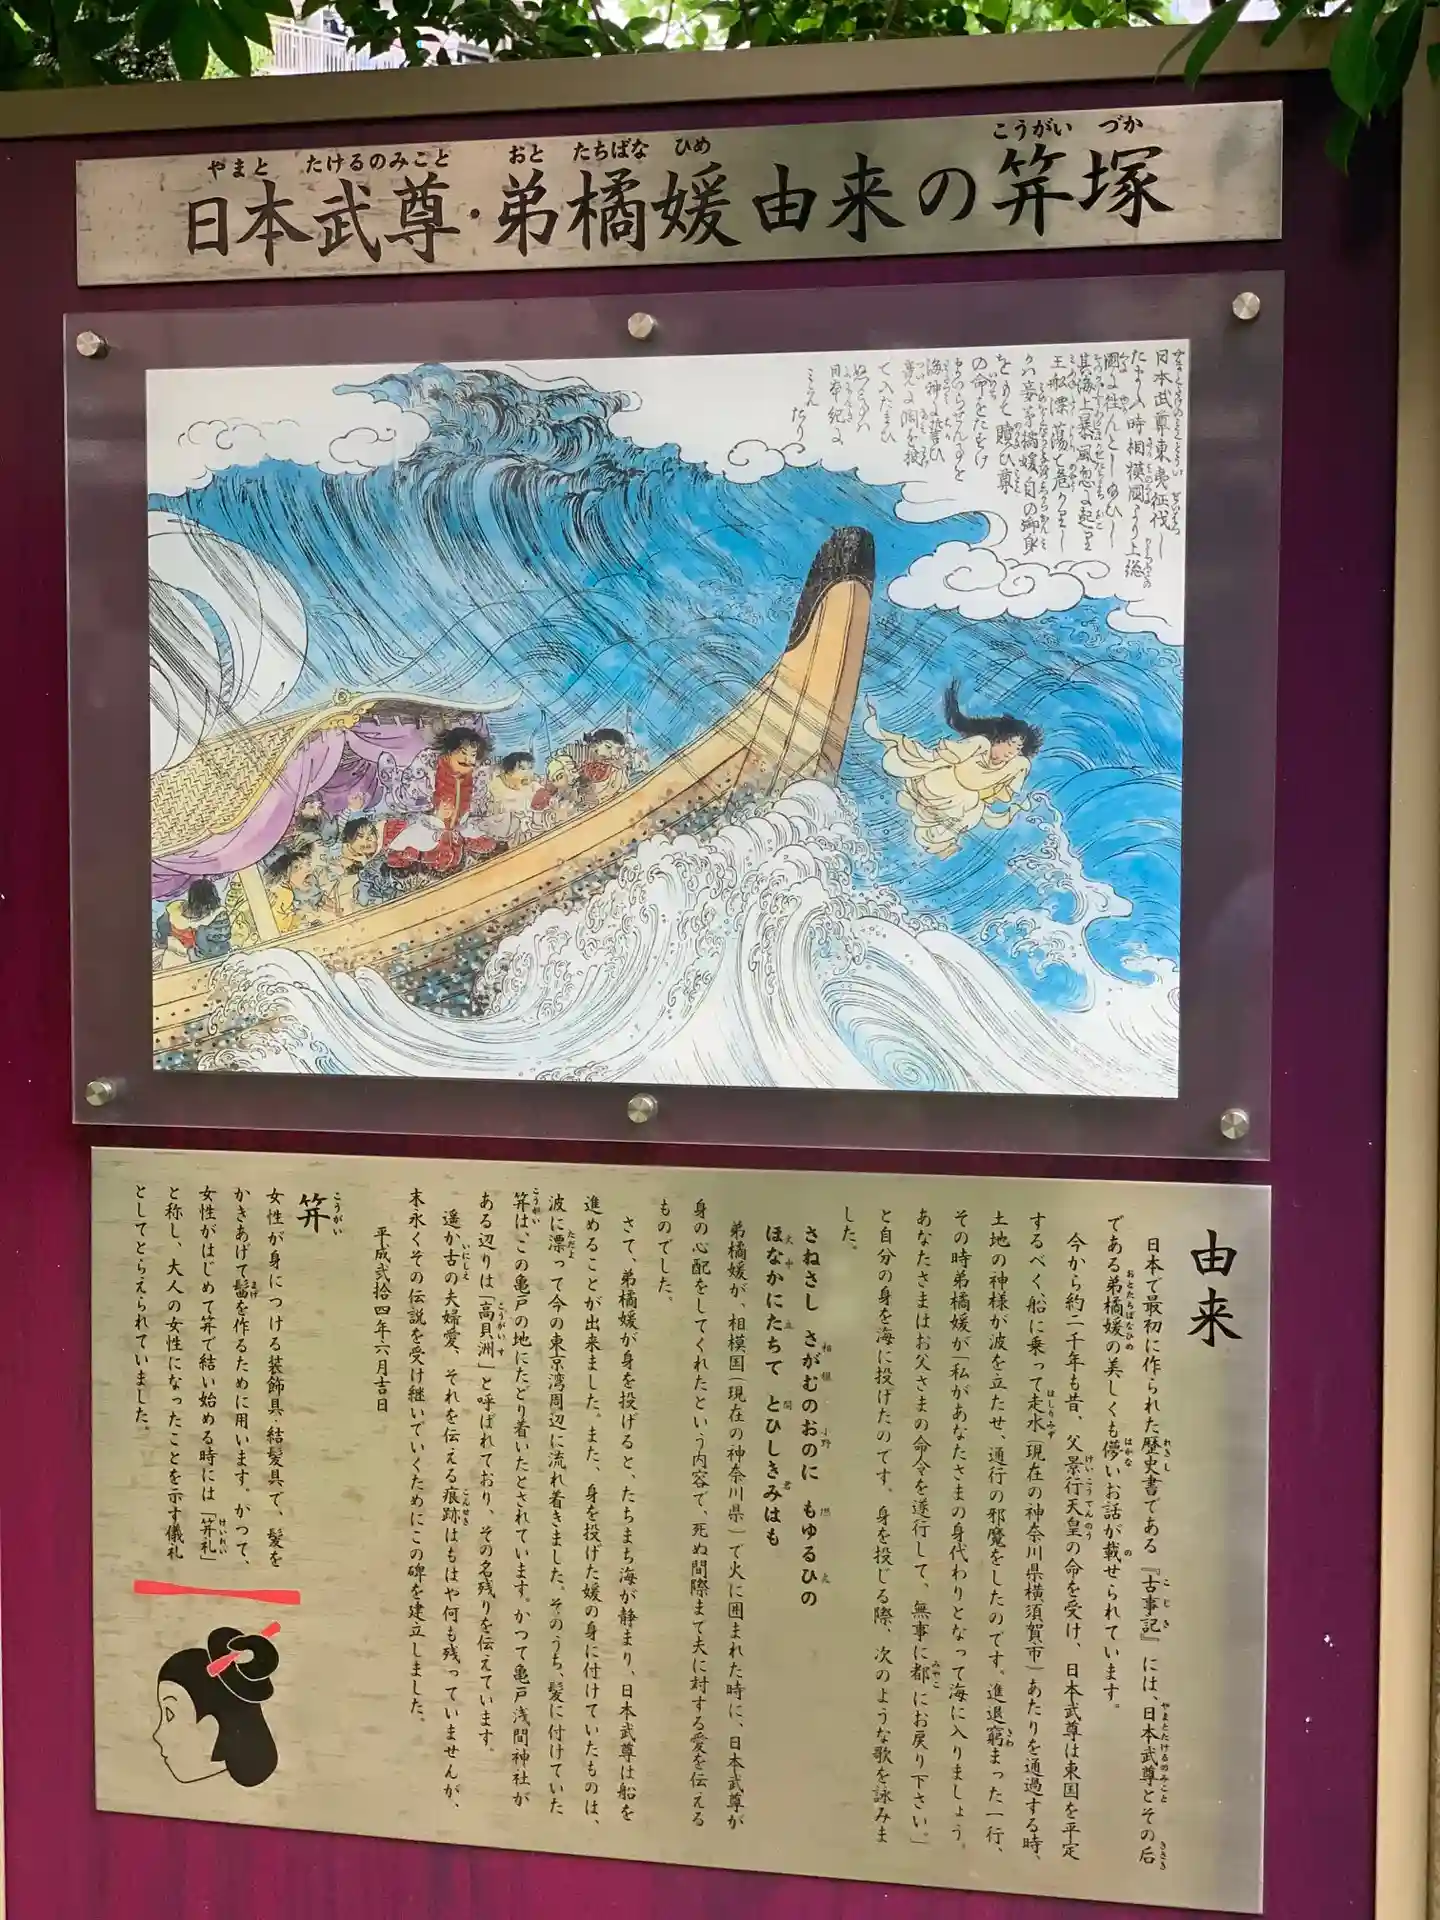 やまと たけるのみこと おと たちばな ひめ こうがい づか
日本武尊・弟橘媛由来の笄塚
日本武尊東夷征伐し
たまふ時相模国より上総
国に往んとし
其海上暴風忽に起り
王船漂蕩と危かりし
かバ妾弟橘媛自の御身
をもて贖ひ尊
の命をたすけ
海神に
て入たまひ
日本紀に
ミえたり
由来
日本で最初に作られた歴史書である『古事記』には、日本武尊とその后
れきし こじき やまとたけるのみこと きさき
である弟橘媛の美しくも儚いお話が載せられています。
おとたちばなひめ はかな の
今から約二千年も昔、父景行天皇の命を受け、日本武尊は東国を平定
けいこうてんのう
するべく、船に乗って走水(現在の神奈川県横須賀市)あたりを通過する時、
はしりみず
土地の神様が波を立たせ、通行の邪魔をしたのです。進退窮まった一行、
きわ
その時弟橘媛が「私があなたさまの身代わりとなって海に入りましょう。
あなたさまはお父さまの命令を遂行して、無事に都にお戻り下さい。」
みやこ
と自分の身を海に投げたのです。身を投じる際、次のような歌を詠みま
した。
さねさし さがむのおのに もゆるひの
相模 小野 燃 火
ほなかにたちて とひしきみはも
火中 立 問 君
弟橘媛が、相模国(現在の神奈川県)で火に囲まれた時に、日本武尊が
身の心配をしてくれたという内容で、死ぬ間際まで夫に対する愛を伝える
ものでした。
さて、弟橘媛が身を投げると、たちまち海が静まり、日本武尊は船を
進めることが出来ました。また、身を投げた媛の身に付けていたものは、
波に漂って今の東京湾周辺に流れ着きました。そのうち、髪に付けていた
ただよ
笄は、この亀戸の地にたどり着いたとされています。かつて亀戸浅間神社が
こうがい
ある辺りは「高貝洲」と呼ばれており、その名残りを伝えています。
こうがいす
遥か古の夫婦愛、それを伝える痕跡はもはや何も残っていませんが、
いにしえ こんせき
末永くその伝説を受け継いでいくためにこの碑を建立しました。
平成弐拾四年六月吉日
笄
こうがい
女性が身につける装飾具・結髪具で、髪を
かきあげて髷を作るために用います。かつて、
まげ
女性がはじめて笄で結い始める時には「笄礼」
けいれい
と称し、大人の女性になったことを示す儀礼
としてとらえられていました。